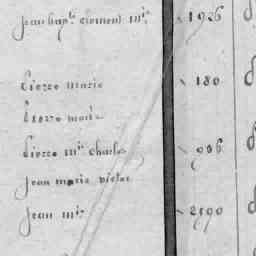 Jean bap.te Clement m.re 1926
Pierre marie 180
Pierre marie
Pierre m.re Charles 996
Jean marie victor
Jean m.re 2590